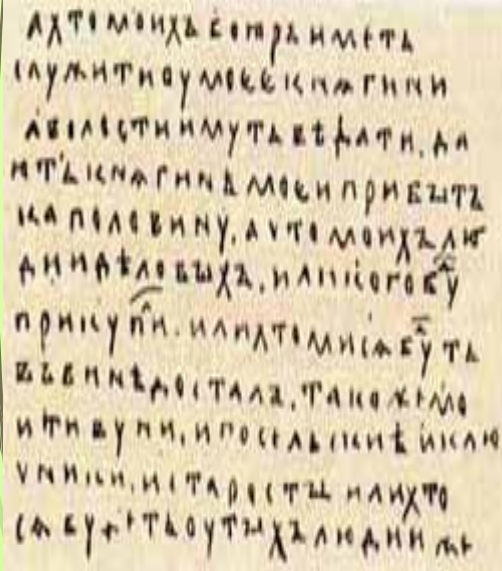 а хто моихъ боꙗръ иметь
служити оу моее кнѧгини
а волости имуть вѣдати. да
ють кнѧгинѣ моеи прибытъ
ка половину. а что моихъ лю
дии дѣловыхъ. или кого буⷣ
прикупиⷧ. или хто ми сѧ буⷣть
въ винѣ досталъ. такоже мо
и тивуни. и посельскиѣ и клю
чники. и старосты или хто
сѧ будеть оу тыхъ людии же